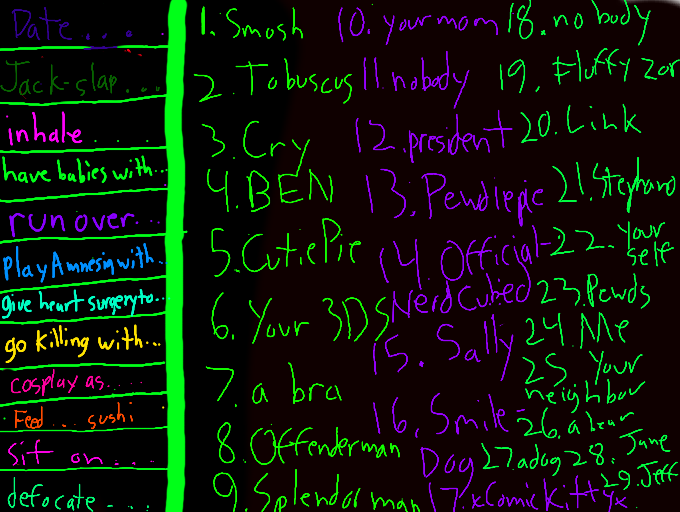 Date.....
Jack-slap...
inhale....
have babies with...
run over...
play Amnesia with..
give heart surgery to...
go killing with...
cosplay as.....
Feed... sushi
sit on....
defocate....
1. Smosh
2. Tobuscus
3. Cry
4. BEN
5. CutiePie
6. Your 3DS
7. a bra
8. Offenderman
9. Splendorman
10. your mom
11. nobody
12. president
13. Pewdiepie
14. Official-
NerdCubed
15. Sally
16. Smile-
Dog
17. xComicKittyx
18. no body
19. Fluffy zor
20. Link
21. Stephano
22. Your
self
23. Pewds
24. Me
25. Your
neighbour
26. a bear
27. a dog 28. Jane
29. Jeff